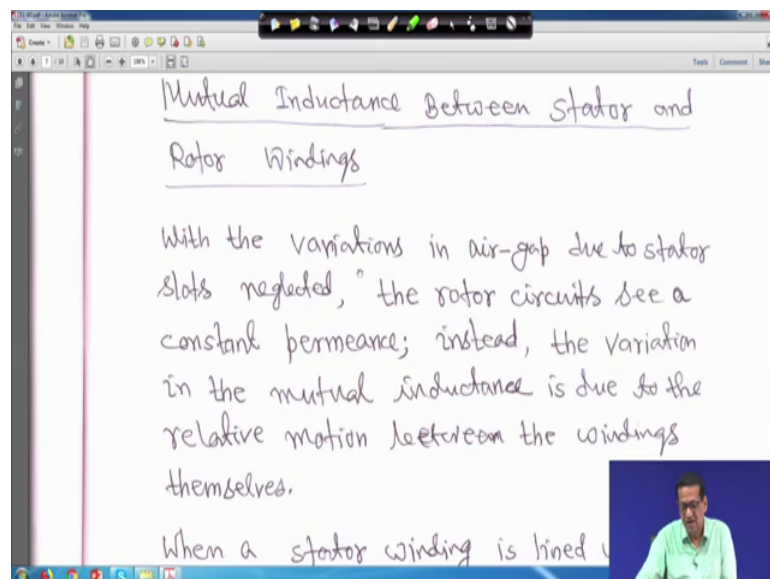 TS-NI.pdf - Adobe Acrobat Pro
File Edit View Window Help
Create
7 / 18
Tools Comment
Mutual Inductance Between Stator and
Rotor Windings
With the variations in air-gap due to stator
slots neglected, the rotor circuits see a
constant permeance; instead, the variation
in the mutual inductance is due to the
relative motion between the windings
themselves.
When a stator winding is lined